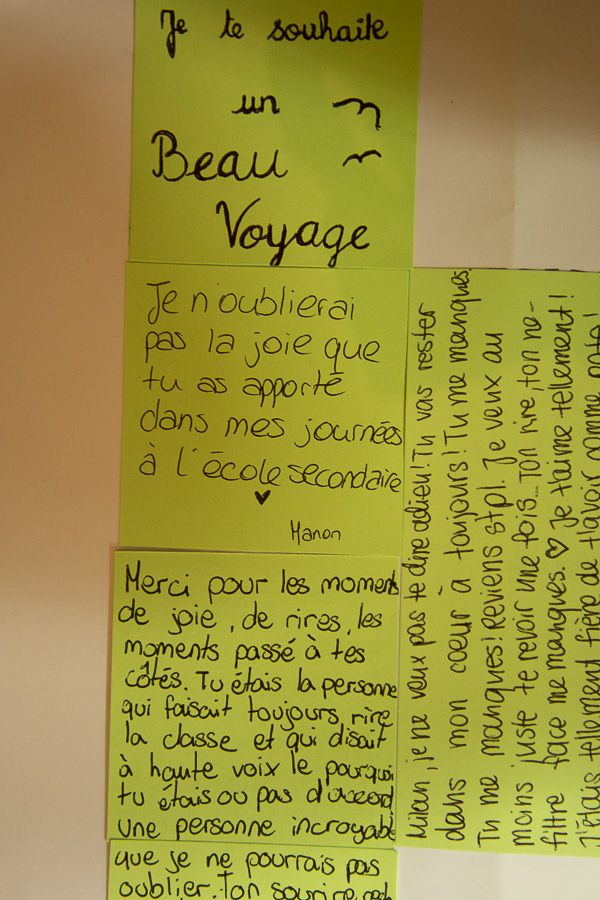 Je te souhaite
un
Beau
Voyage
Je n'oublierai
pas la joie que
tu as apporté
dans mes journées
à l'école secondaire
♥
Manon
Merci pour les moments
de joie, de rires, les
moments passé à tes
côtés. Tu étais la personne
qui faisait toujours rire
la classe et qui disait
à haute voix le pourquoi
tu étais ou pas d'accord
une personne incroyable
que je ne pourrais pas
oublier. Ton sourire
Milan, je ne veux pas te dire adieu! Tu vas rester
dans mon coeur à toujours! Tu me manques.
Tu me manques! Reviens stpl. Je veux au
moins juste te revoir une fois... Ton rire, ton ne-
filtre face me manques. ♥ Je t'aime tellement!
J'étais tellement fière de t'avoir comme pote!